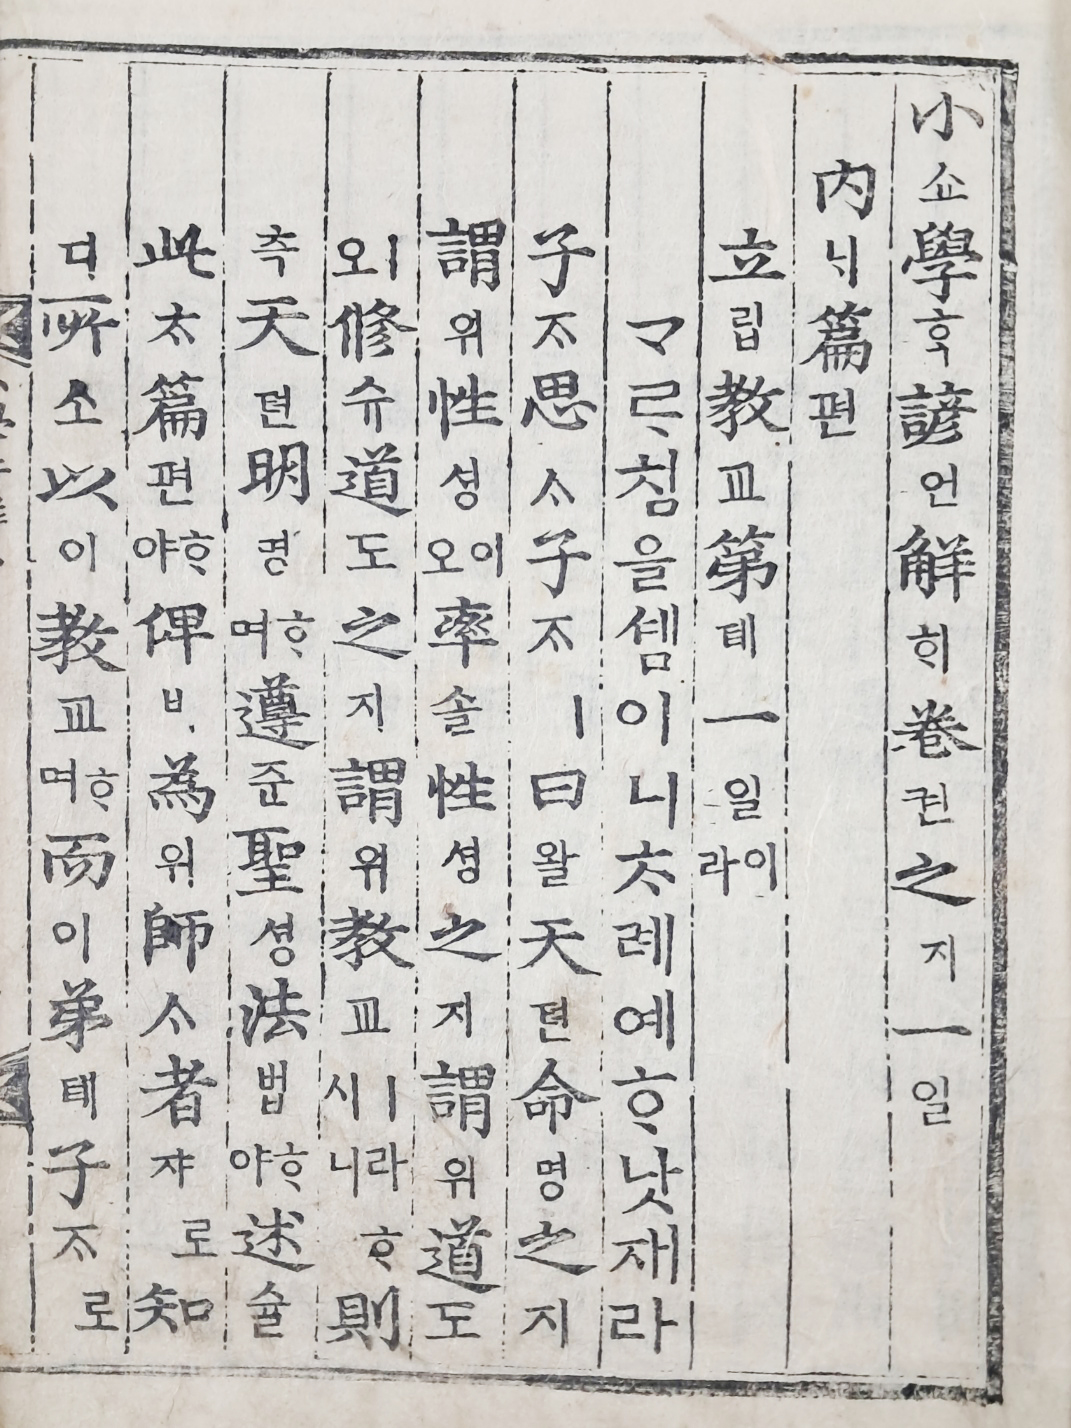 小쇼學ᄒᆞᆨ諺언解ᄒᆡ卷권之지一일
內ᄂᆡ篇편
立립敎교第뎨一일이라
ᄀᆞᄅᆞ침을셈이니ᄎᆞ례예ᄒᆞ낫재라
子ᄌᆞ思ᄉᆞ子ᄌᆞㅣ曰왈天텬命명之지
謂위性셩이오率솔性셩之지謂위道도
ㅣ오修슈道도之지謂위敎교ㅣ라시니ᄒᆞ則
측天텬明명ᄒᆞ며遵준聖셩法법ᄒᆞ야述슐
此ᄎᆞ篇편ᄒᆞ야俾비爲위師ᄉᆞ者쟈로知
디所소以이敎교ᄒᆞ며而이弟뎨子ᄌᆞ로